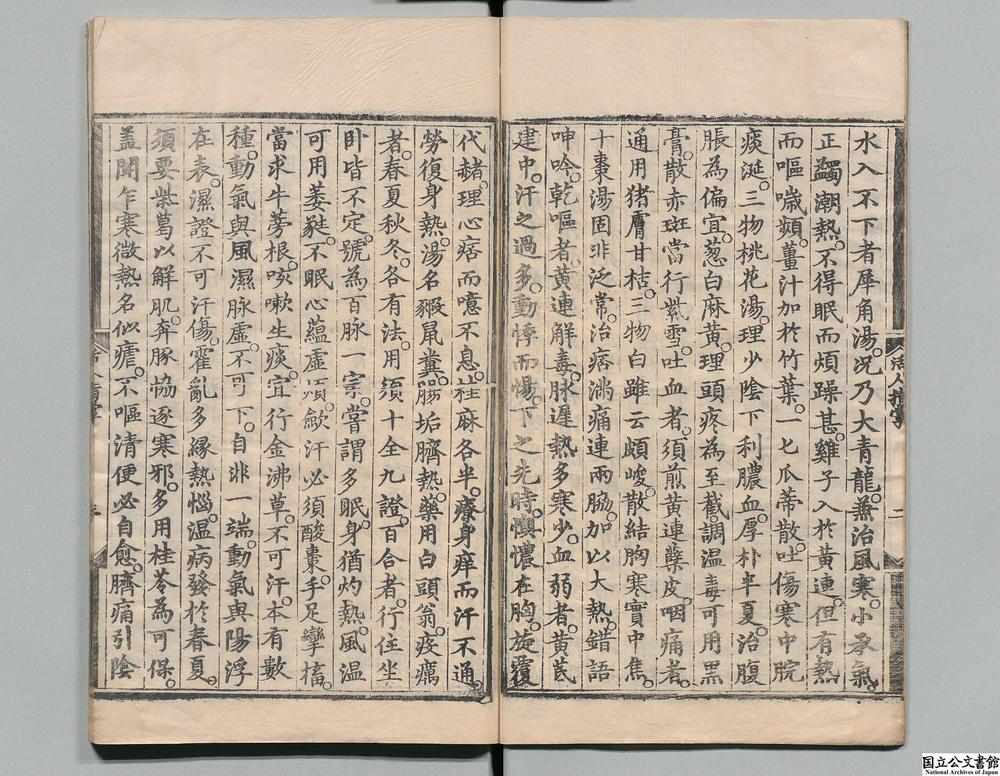 水入不下者犀角湯。况乃大青龍。兼治風寒。小承氣。
正蠲潮熱。不得眠而煩躁甚。雞子入於黃連。但有熱
而嘔噦頻。薑汁加於竹葉。一七瓜蒂散。吐傷寒中脘
痰涎。三物桃花湯。理少陰下利膿血。厚朴半夏。治腹
脹為偏宜。葱白麻黃。理頭疼為至截。調温毒可用黑
膏。散赤斑當行紫雪。吐血者。須煎黃連蘗皮。咽痛者。
通用猪膚甘桔。三物白雖云頗峻。散結胸寒實中焦。
十棗湯固非泛常。治痞滿痛連兩脇。加以大熱。錯語
呻吟。乾嘔者。黃連解毒。脉遲熱多寒少。血弱者。黃芪
建中。汗之過多。動悸而惕。下之先時。懊憹在胸。旋覆
代赭。理心痞而噫不息。桂麻各半。療身痒而汗不通。
勞復身熱。湯名豭鼠糞。腸垢臍熱。藥用白頭翁。疫癘
者。春夏秋冬。各有法。用須十全九證。百合者。行住坐
卧皆不定。號為百脉一宗。嘗謂多眠。身猶灼熱。風温
可用萋蕤。不眠心蘊虛煩。歛汗必須酸棗。手足攣搐。
當求牛蒡根。咳嗽生痰。宜行金沸草。不可汗。本有數
種。動氣與風濕脉虛。不可下。自非一端。動氣與陽浮
在表。濕證不可汗傷。霍亂多緣熱惱。温病發於春夏。
須要柴葛以解肌。奔豚恊逐寒邪。多用桂苓為可保。
盖聞乍寒微熱名似瘧。不嘔清便必自愈。臍痛引陰
活人指掌
二
國立公文書館
National Archives of Japan